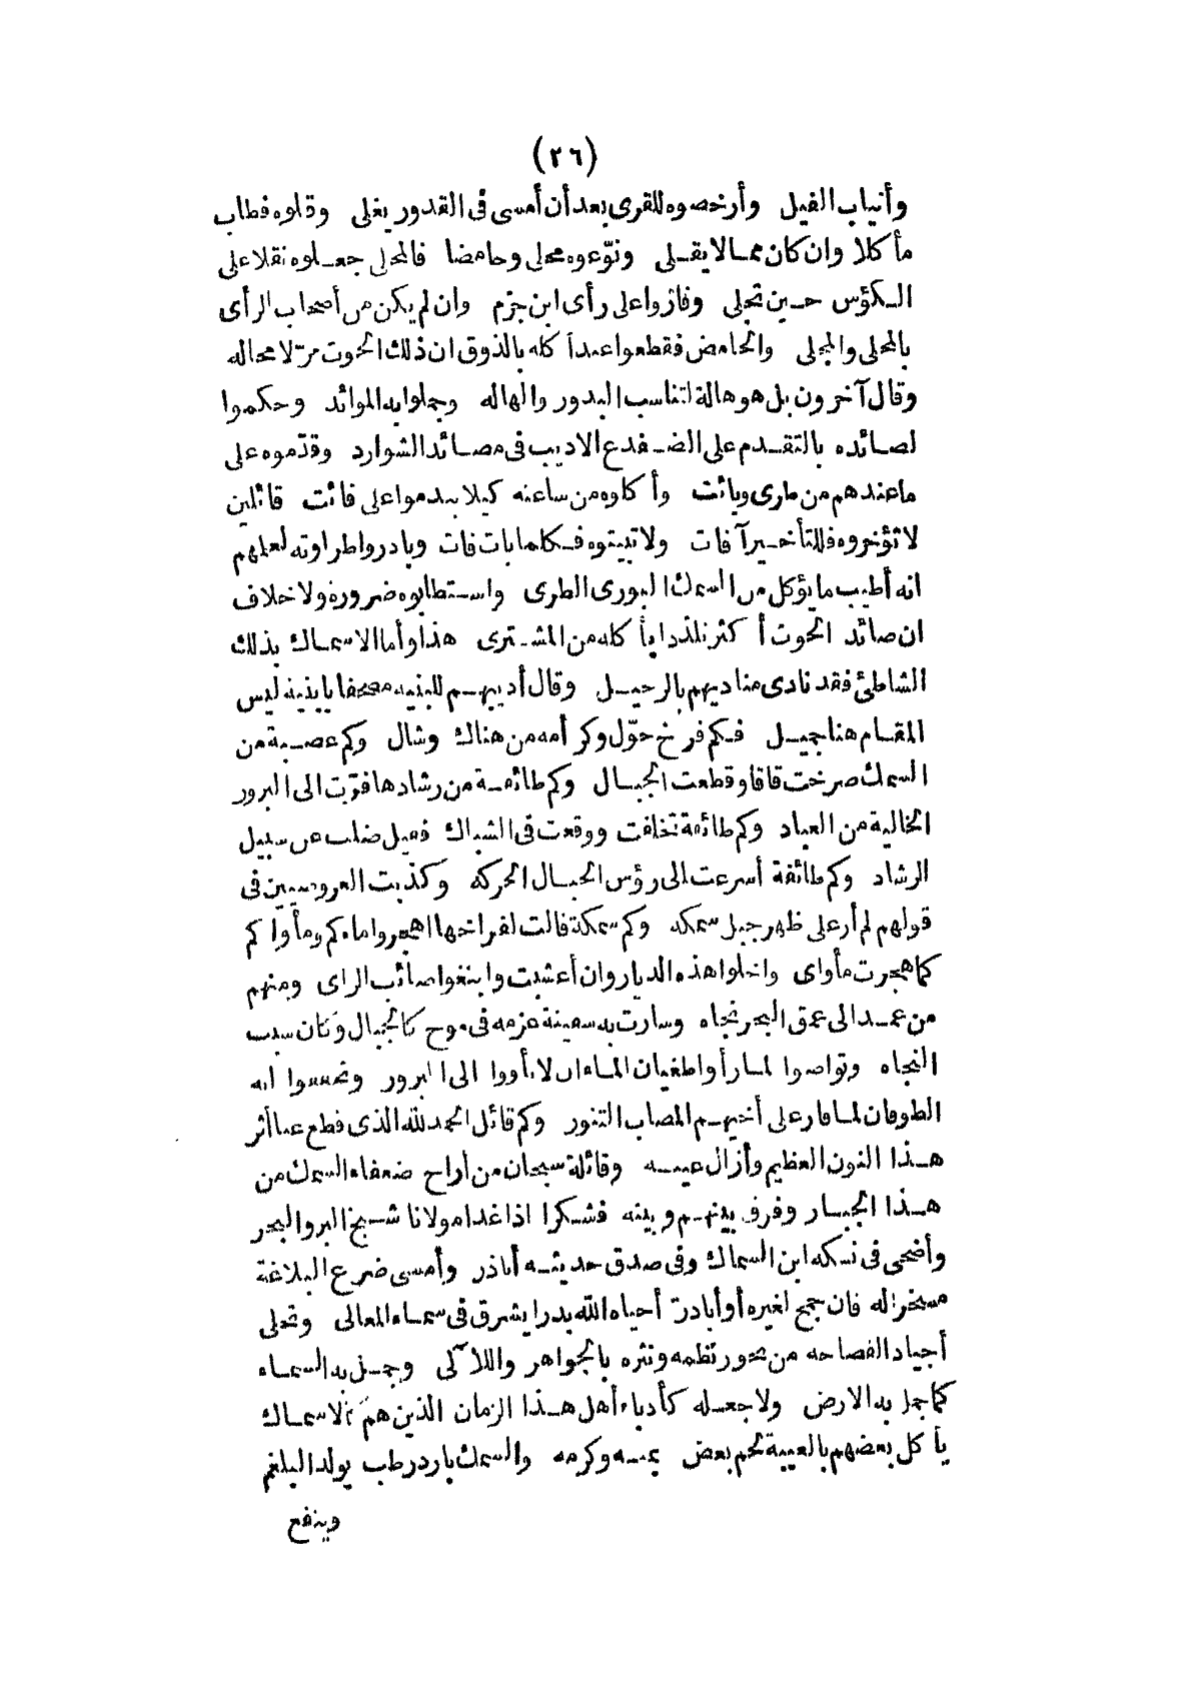 (٢٦)
وأنياب الفيل وأرخصوه للقرى بعد أن أمسى فى القدور يغلى وقلوه فطاب
مأكلا وان كان مما لا يقلى ونوّعوه محلى وحامضا فالمحلى جعلوه نقلا على
الكؤس حين تجلى وفازوا على رأى ابن جزم وان لم يكن من أصحاب الرأى
بالمحلى والمجلى والحامض فقطعوا عند أكله بالذوق ان ذلك الحوت مرّ لا محاله
وقال آخرون بل هو هالة لتناسب البدور والهاله وجملوا به الموائد وحكموا
لصائده بالتقدم على الضفدع الاديب فى مصائد الشوارد وقدّموه على
ما عندهم من طرى وبائت وأكلوه من ساعته كيلا يندموا على فائت قائلين
لا تؤخروه فللتأخير آفات ولا تبيتوه فكلما بات فات وبادروا طراوته لعلمهم
انه أطيب ما يؤكل من السمك البورى الطرى واستطابوه ضرورة ولا خلاف
ان صائد الحوت أكثر تلذذا بأكله من المشترى هذا وأما الاسماك بذلك
الشاطئ فقد نادى مناديهم بالرحيل وقال أديبهم للبنيه مصحفا يا بنيه ليس
المقام هنا جميل فكم فرخ حوّل وكر أمه من هناك وشال وكم عصبة من
السمك صرخت قاقا وقطعت الجبال وكم طائفة من رشادها فرّت الى البرور
الخالية من العباد وكم طائفة تخلفت ووقعت فى الشباك فقيل ضلت عن سبيل
الرشاد وكم طائفة أسرعت الى رؤس الجبال الحركه وكذبت العروضيين فى
قولهم لم أر على ظهر جبل سمكه وكم سمكة قالت لفراخها اهجروا ماءكم ومأواكم
كما هجرت مأواى واخلوا هذه الديار وان أعشبت وابتغوا صائب الراى ومنهم
من عمد الى عمق البحر نجاه وسارت به سفينة عزمه فى موج كالجبال وكان سبب
النجاه وتواصوا لما رأوا طغيان الماء ان لا يأووا الى البرور وتحققوا انه
الطوفان لما فار على أخيهم المصاب التنور وكم قائل الحمد لله الذى قطع عنا أثر
هذا النون العظيم وأزال عينه وقائلة سبحان من اراح ضعفاء السمك من
هذا الجبار وفرق بينهم وبينه فشكرا اذا غدا مولانا شيخ البر والبحر
وأضحى فى نسكه ابن السماك وفى صدق حديثه أباذر وأمسى ضرع البلاغة
مسخرا له فان جمح لغيره أو أبادرّ أحياه الله بدرا يشرق فى سماء المعالى وتحلى
أجياد الفصاحه من بحور نظمه ونثره بالجواهر واللآلى وجمل به السماء
كما جمل به الارض ولا جعله كأدباء أهل هذا الزمان الذين هم كالاسماك
يأكل بعضهم بالغيبة لحم بعض بمنه وكرمه والسمك بارد رطب يولد البلغم
وينفع